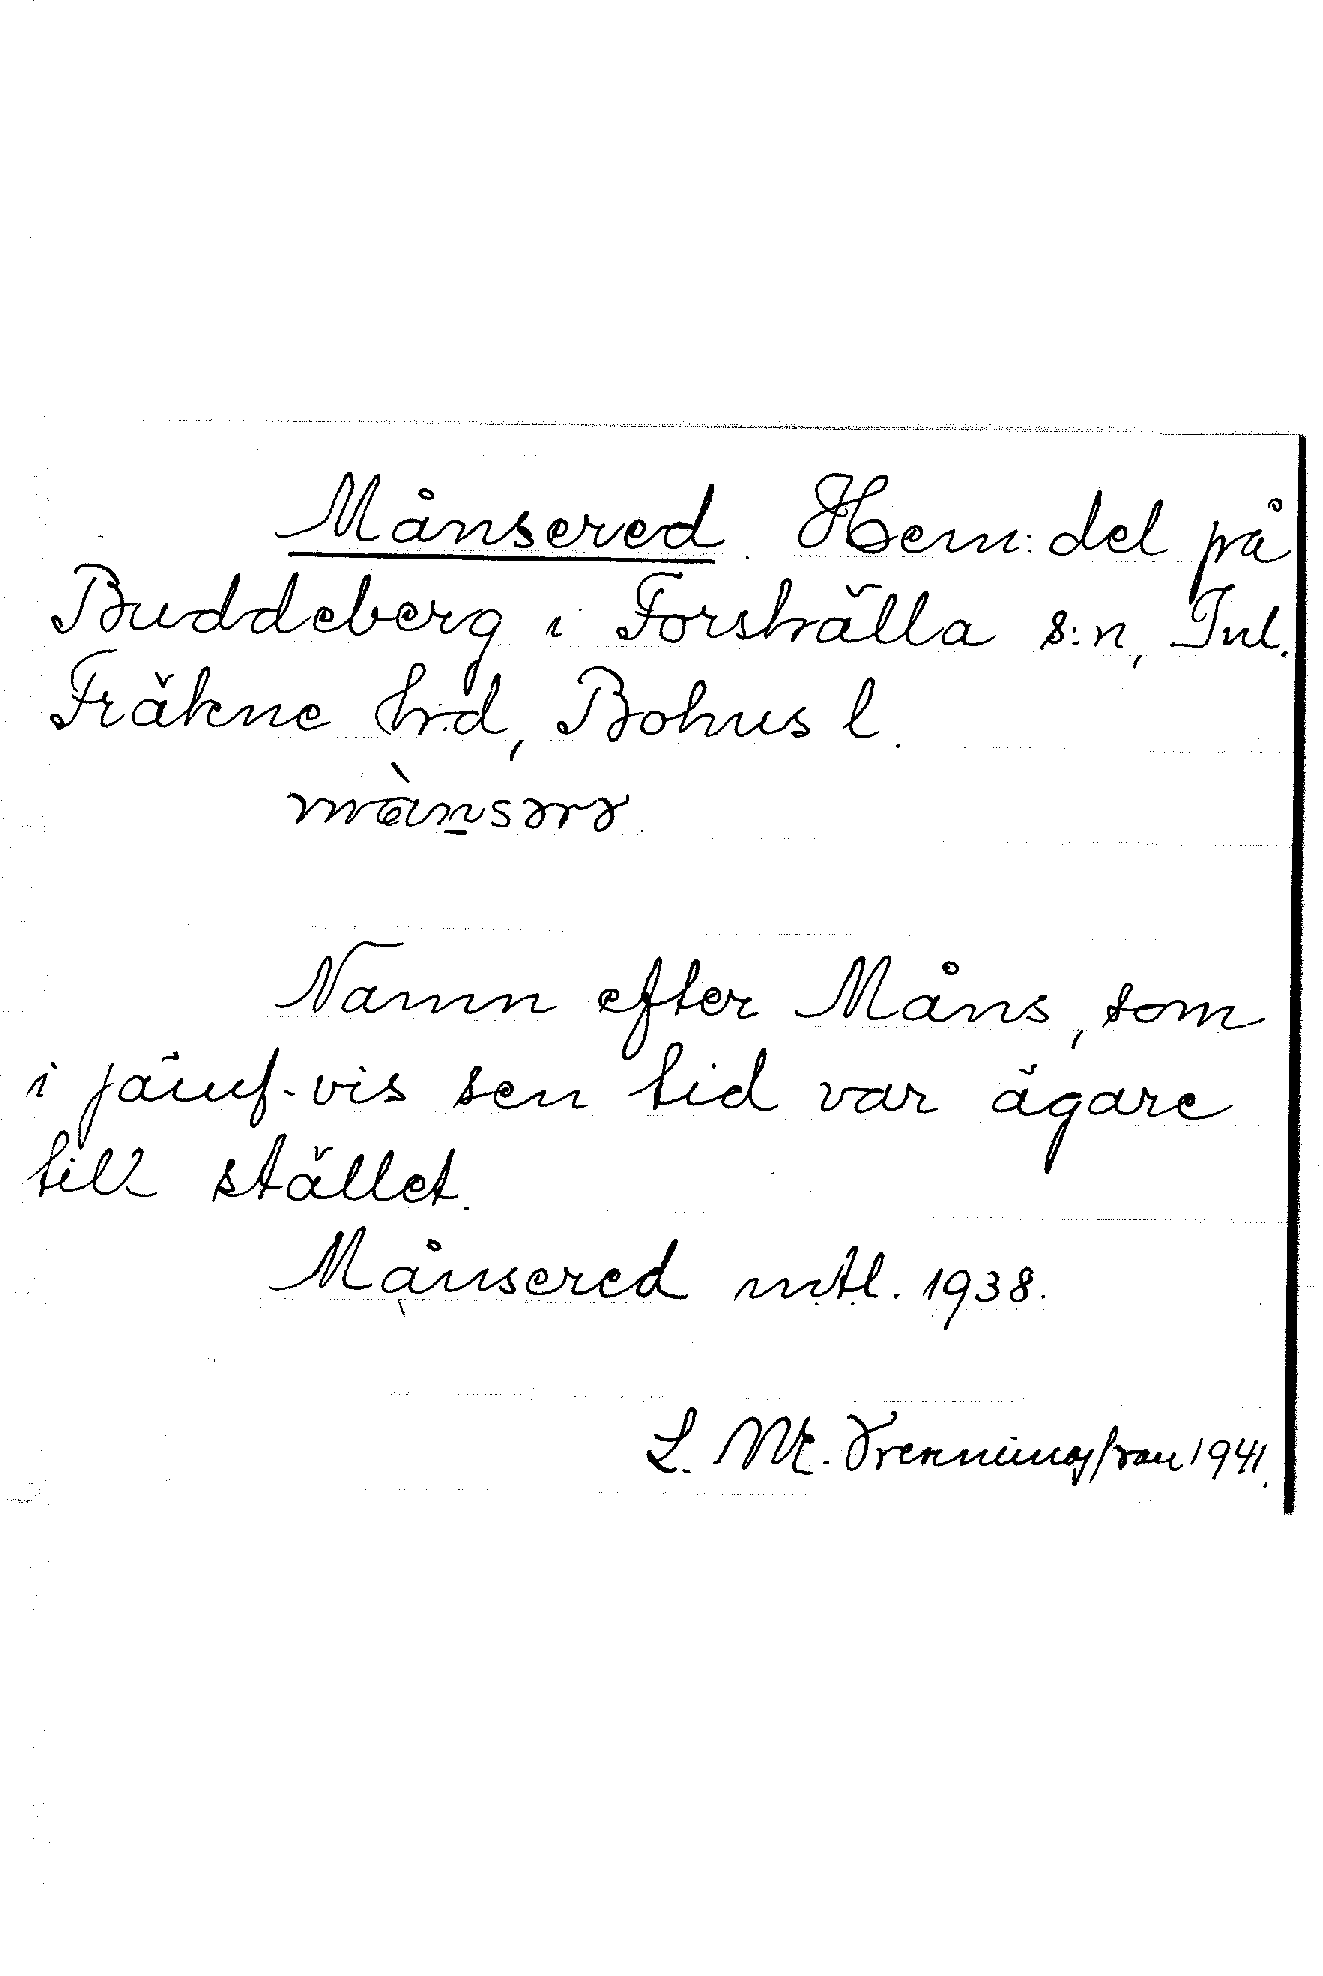 Månsered. Hem: del på
Buddeberg i Forshälla s:n, Inl.
Fräkne hrd, Bohus l.
Namn efter Måns, som
i jämf-vis sen tid var ägare
till stället.
Månsered mtl. 1938.
L. M. 1941.